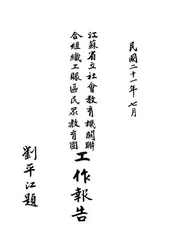 民國二十一年七月
江蘇省立社會教育機關聯
合組織工賑區民眾教育團
工作報告
劉平江題